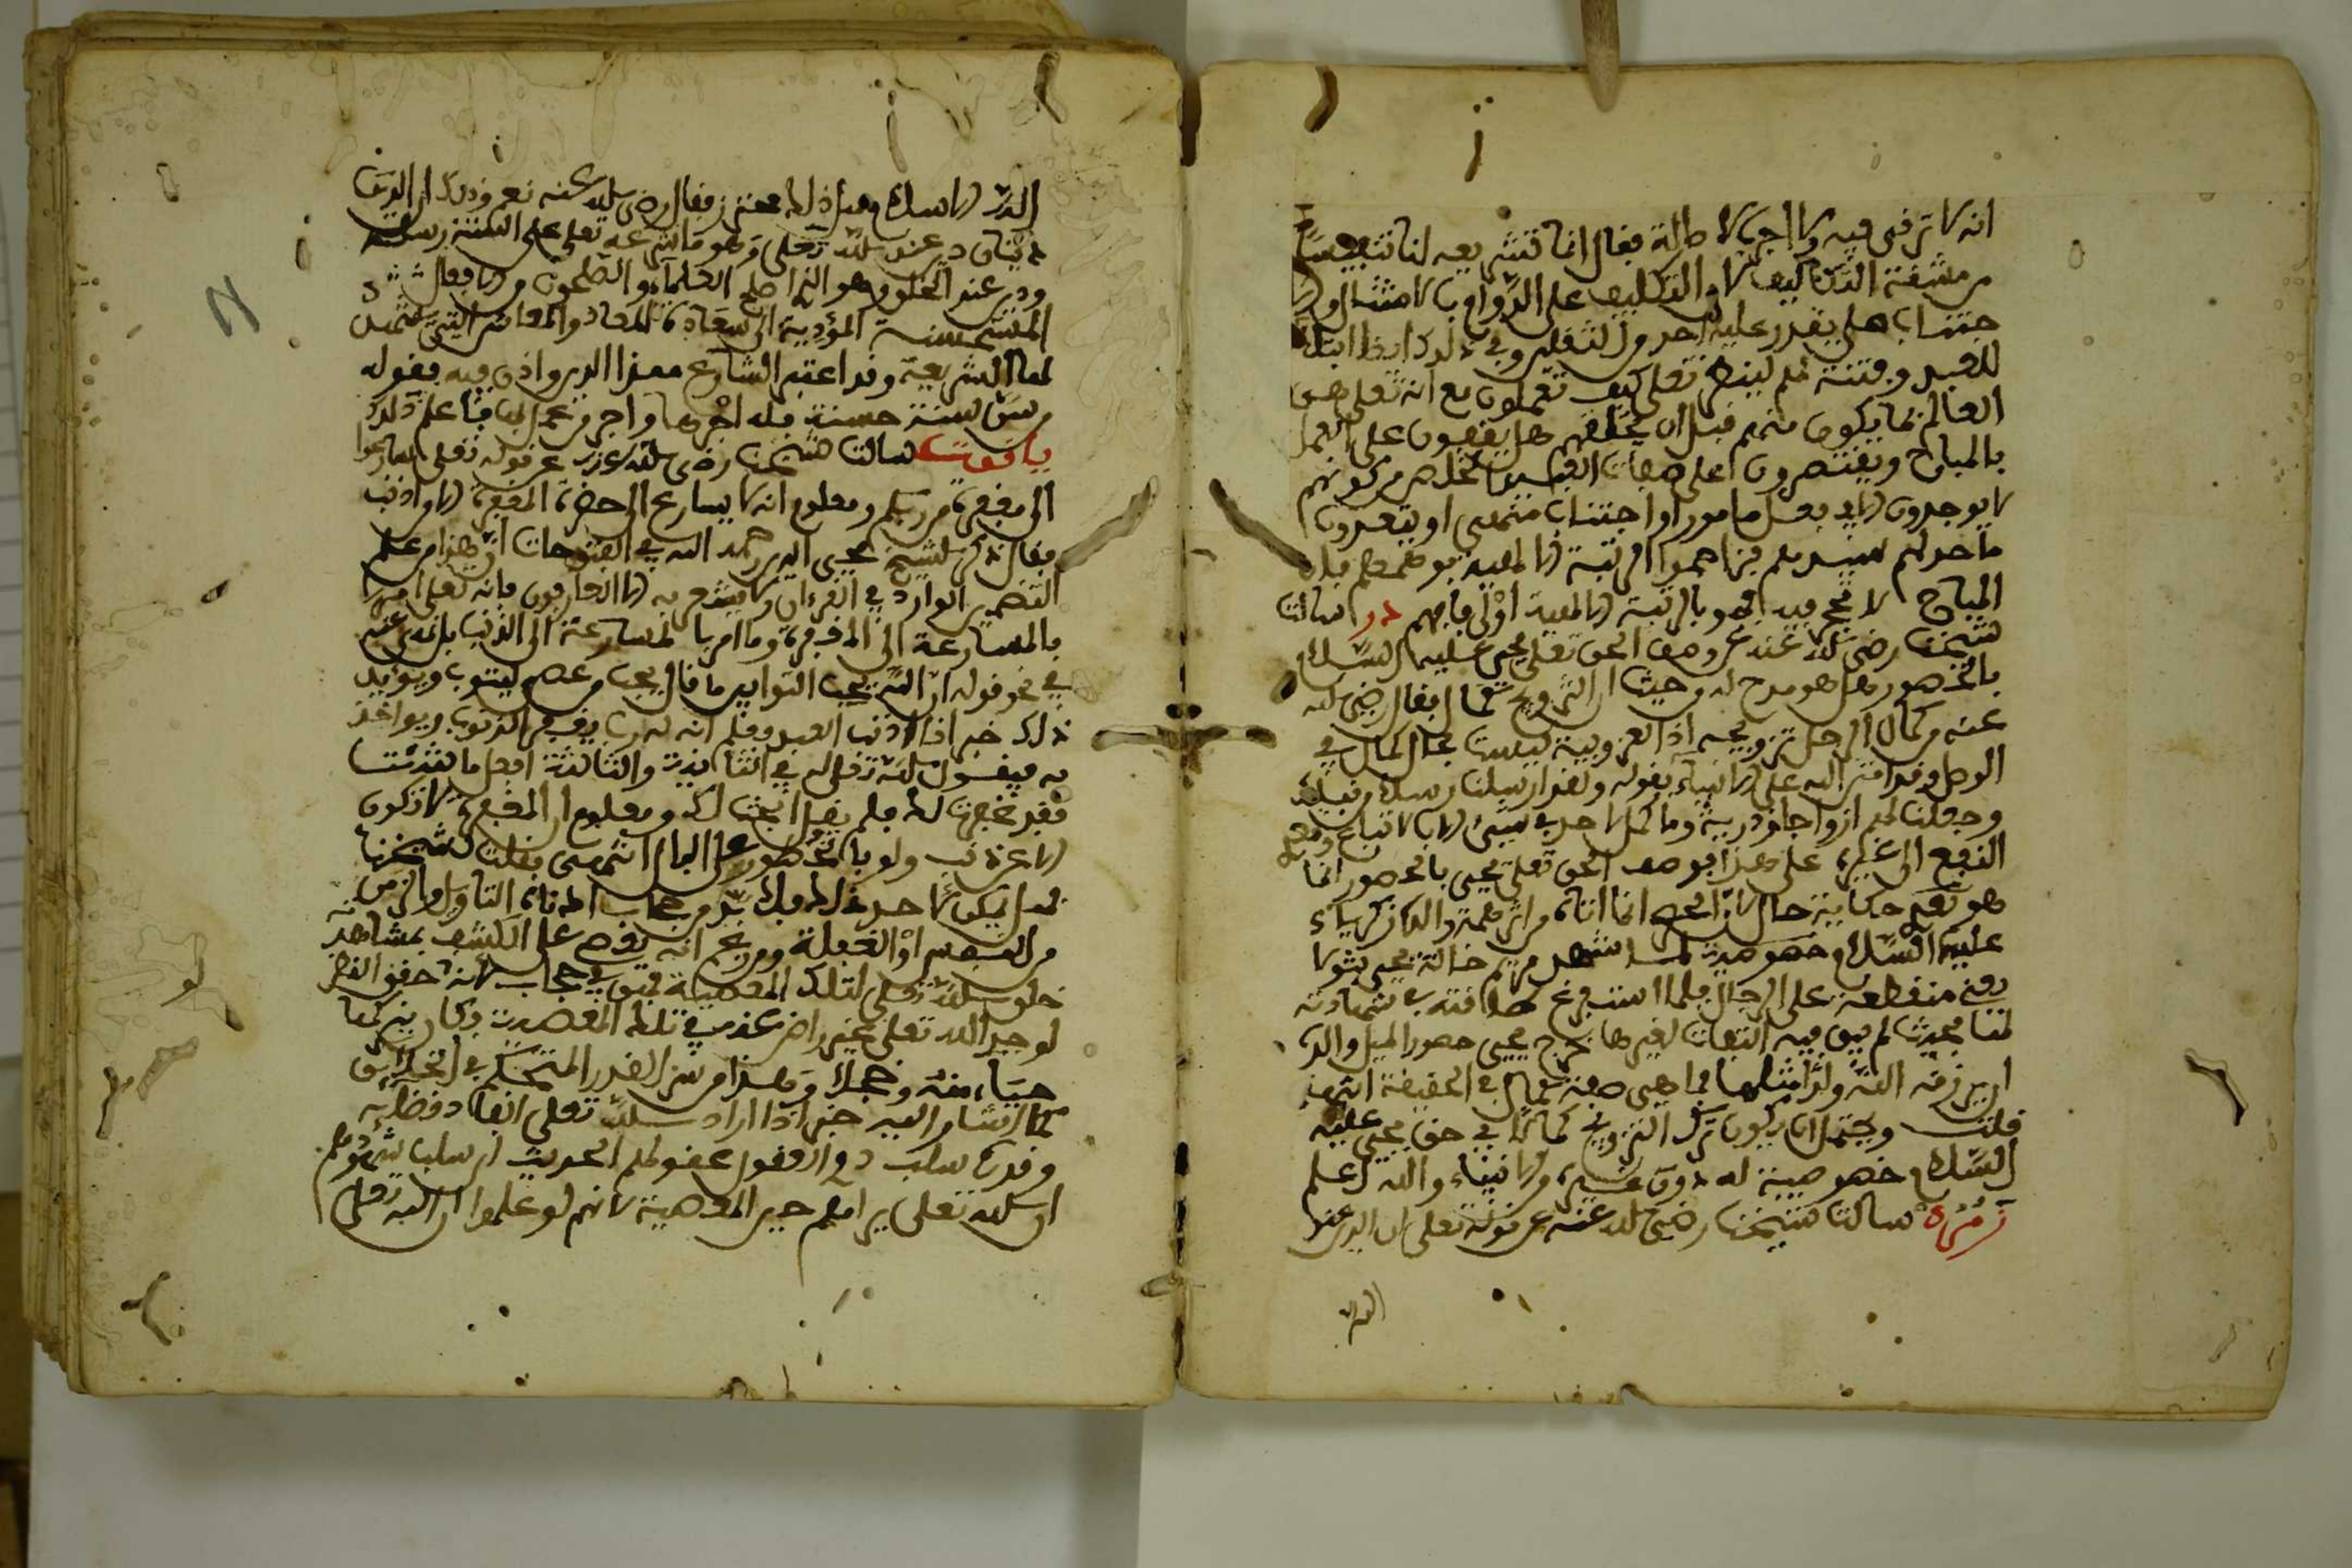 انه لا ترقى فيه ولا اجر بالاصالة فقال انما تشريعه لنا تنفيسا
من مشقة التكاليف لان التكليف على الدوام بالامتثال والا
جتناب هل يقدر عليه احد من الثقلين وفي ذلك ايضا ابتلاء
للعبيد وفتنة لهم لينظر تعلى كيف تعملون مع انه تعلى هو
العالم بما يكون منهم قبل ان يخلقهم هل يقفون على العمل
بالمباح ويقتصرون على صفات العبيد الخلص من كونهم
لا يوجدون الا في فعل مامور او اجتناب منهي او يتعدون
ما حد لهم سيدهم فيزاحموا الرتبة الالهية بوضعهم فان
المباح لا تحجير فيه فهو بالرتبة الالهية اولى فافهم در سالت
شيخنا رضي الله عنه عن وصف الحق تعلى يحيى عليه السلام
بالحصور هل هو مدح له وحيث ان التزويج كمال فقال رضي الله
عنه من كمال الرجل تزويجه اذ العزوبية ليست بحال الكمال في
الوجود وقد امتن الله على الانبياء بقوله ولقد ارسلنا رسلا من قبلك
وجعلنا لهم ازواجا وذرية وما كمل احد في شيء الا بالاتباع وتعدي
النفع الى غيره على هذا فوصف الحق تعلى يحيى بالحصور انما
هو تعيين حكاية حال لان الحصر انما اتاه من اثر همة والده زكرياء
عليه السلام وحصوصيته لما شهد مريم خالة يحيى بتولا
يعني منقطعة على الرجال فلما استفرغ طاقته في شهادته
لها بحيث لم يبق فيه التفات لغيرها خرج يحيى حصورا لميل والده
ان يرزقه الله ولدا مثلها فما هي صفة كمال في الحقيقة انتهى
قلت ويحتمل ان يكون ترك التزويج كمالا في حق يحيى عليه
السلام خصوصية له دون غيره من الانبياء والله اعلم
زمردة سالت شيخنا رضي الله عنه عن قوله تعلى ان الدين عند
الله
الله الاسلام فقال رضي الله عنه نعم وذلك ان الدين
دينان دين عند الله تعلى وهو ما شرعه تعلى على السنة رسله
ودين عند الخلق وهو الذي اصلح العلماء والصالحون
المستحسنة المودية الى سعادة المعاد والمعاش التي
لها الشريعة وقد اعتبر الشارع هذا الدين واذن فيه بقوله
من سن سنة حسنة فله اجرها واجر من عمل بها فاعلم ذلك
ياقوت سالت شيخنا رضي الله عنه عن قوله تعلى سارعوا
الى مغفرة من ربكم ومعلوم انه لا يسارع الى حضرة المغفرة الا من اذنب
فقال ذكر الشيخ محيي الدين رحمه الله في الفتوحات ان هذا من علم
التضمين الوارد في القرءان ولا يشعر به الا العارفون فانه تعلى امرنا
بالمسارعة الى المغفرة وما امر بالمسارعة الى الذنب بل نهى عنه
في نحو قوله ان الله يحب التوابين ما قال يحب من عصى ليتوب ويؤيد
ذلك خبر اذا اذنب العبد وعلم ان له ربا يغفر الذنوب ويواخذ
به فيقول الله تعلى له في الثانية والثالثة افعل ما شئت
فقد غفرت لك فلم يقل ابحت لك ومعلوم ان المغفرة لا تكون
الا عن ذنب ولو بالخطور على البال انتهى فقلت لشيخنا
من النفس او الغفلة ومن زعم انه يقع على الكشف بمشاهدته
خلق الله تعلى لتلك المعصية فهو في حجاب لانه لو حقق النظر
لوجد الله تعلى غير راض عنه في تلك المعصية وكان يتركها
حياء منه وخجلا وهذا من سر القدر المتحكم في الخلائق
كما اشار اليه خبر اذا اراد الله تعلى انفاذ قضائه
وقدره سلب ذوي العقول عقولهم الحديث اي سلب شهودهم
ان الله تعلى يراهم حين المعصية لانهم لو علموا ان الله تعلى